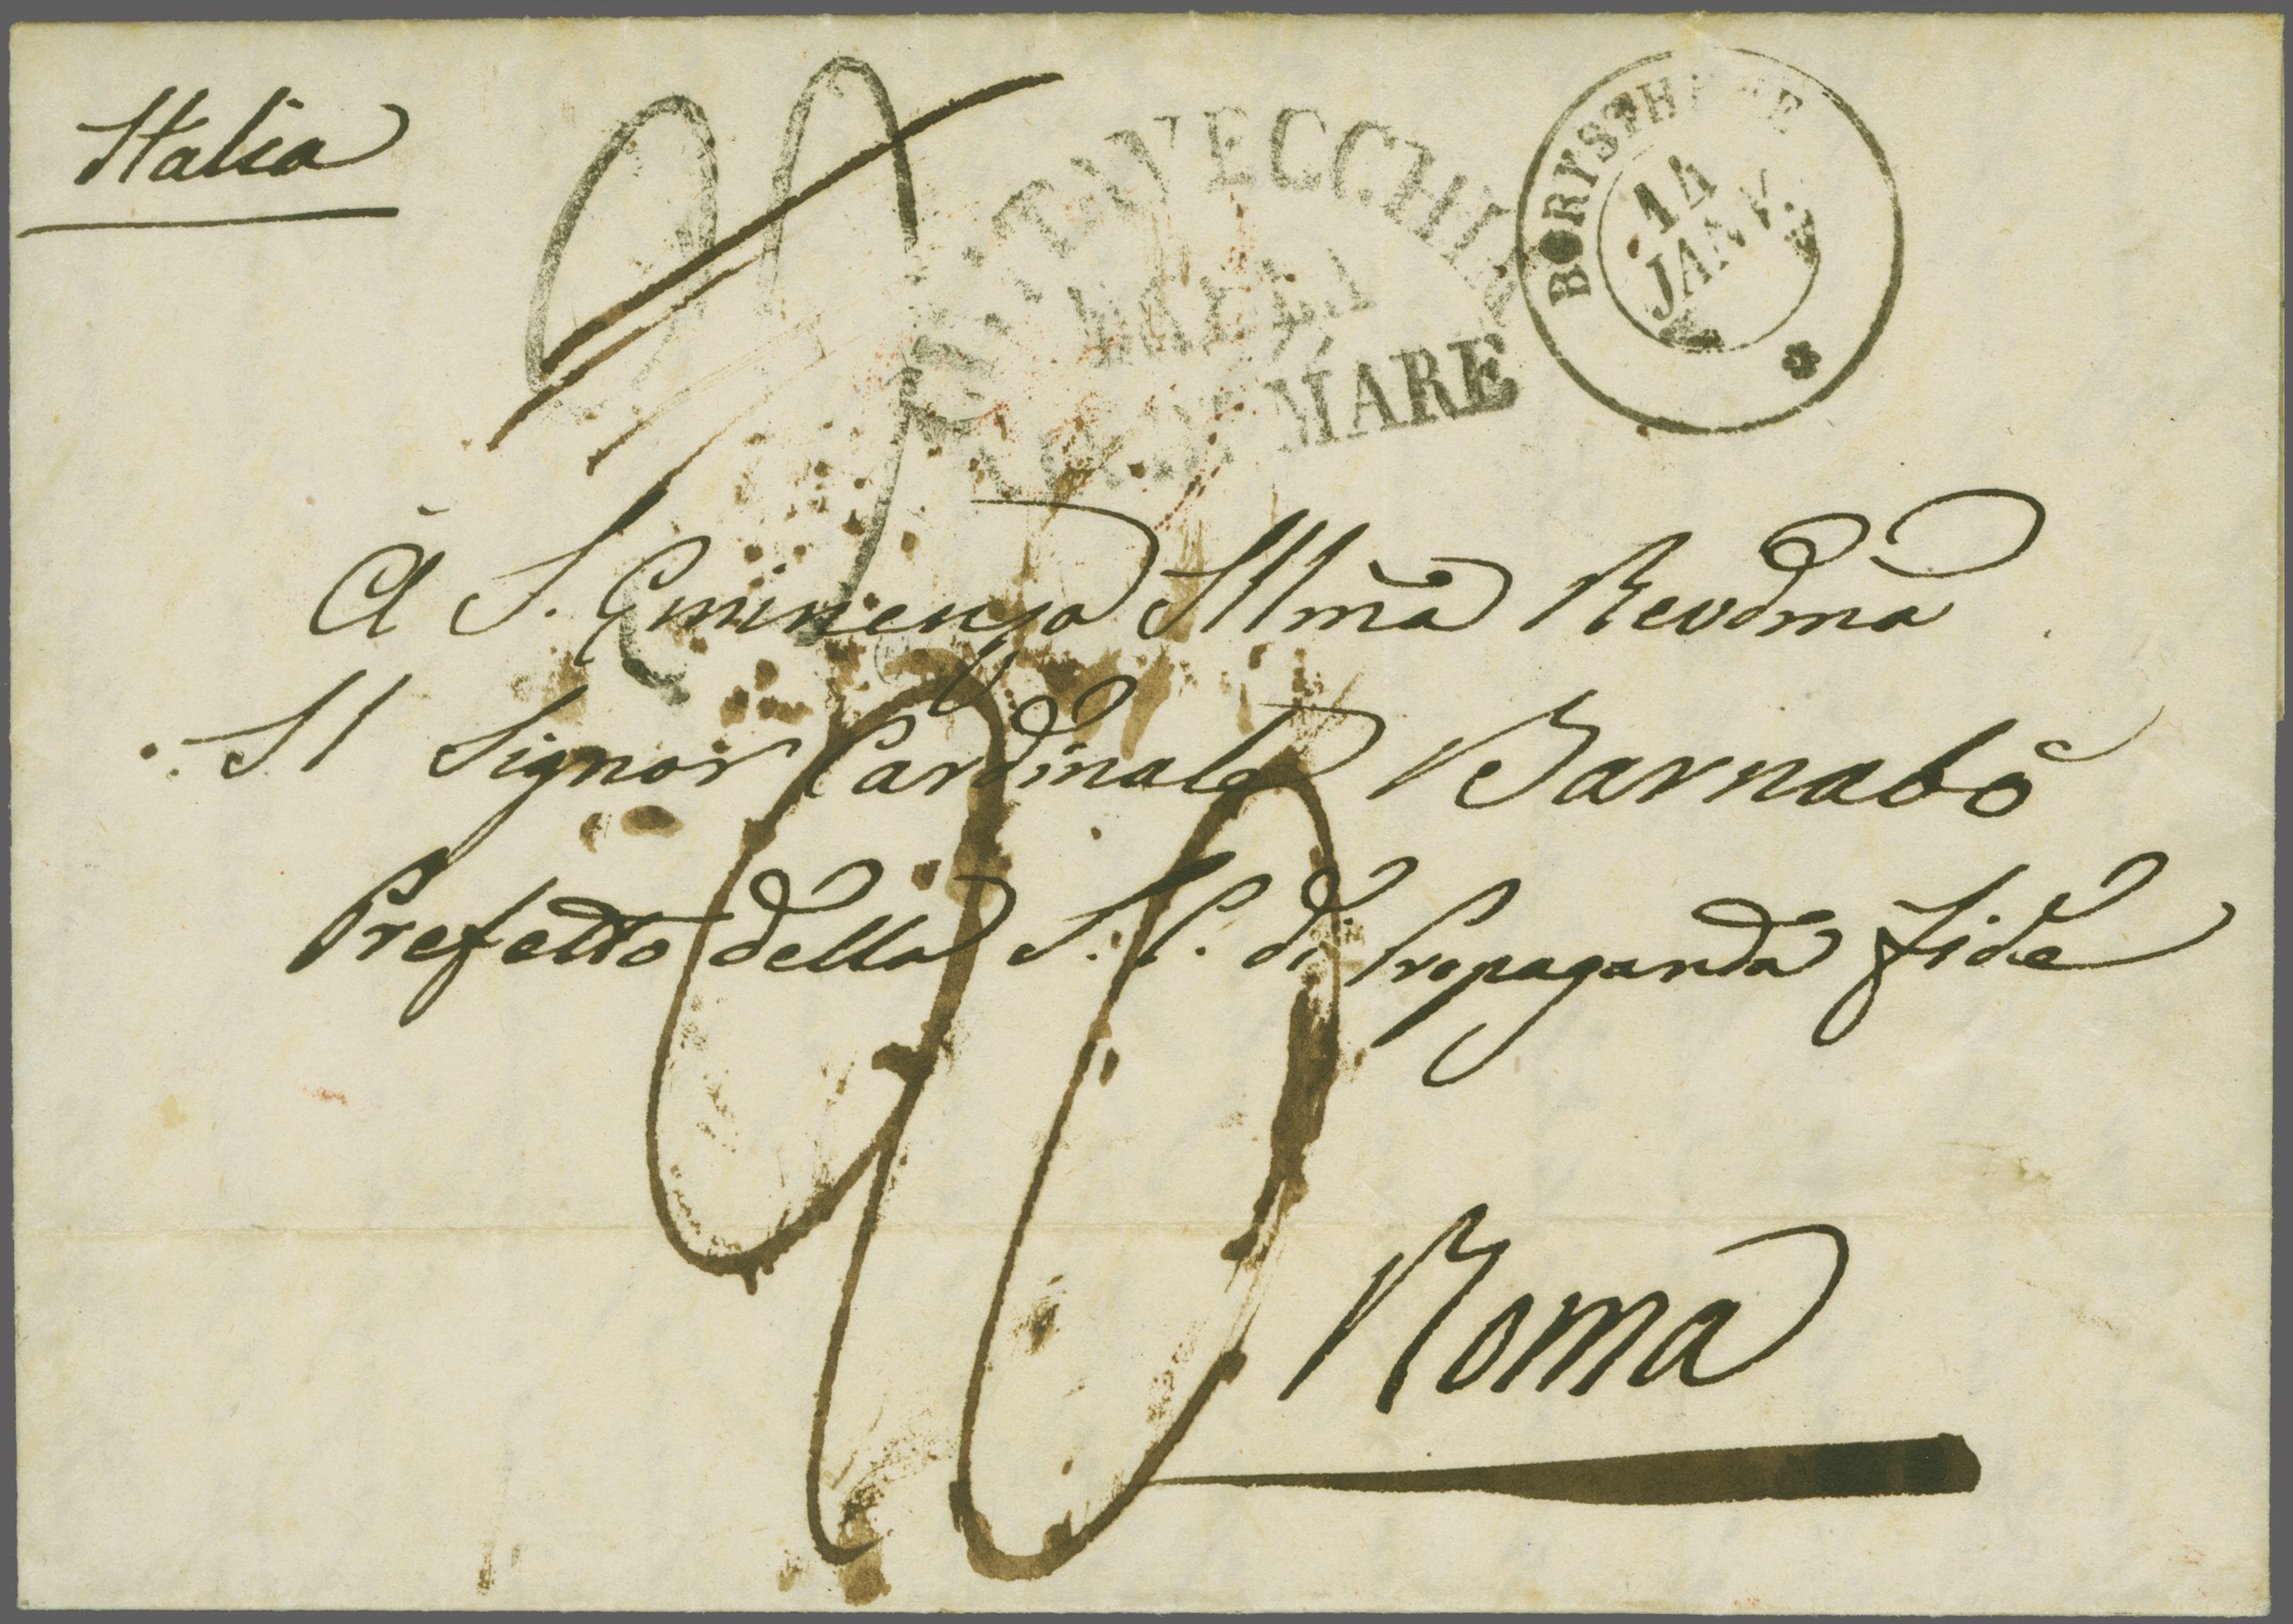 Italia
CIVITAVECCHIA
DALLA
VIA DI MARE
BORYSTHENE
14
JANV.
À S. Eminenza Illma Revdma
Il Signor Cardinale Barnabò
Prefetto della S. C. di Propaganda Fide
90
Roma